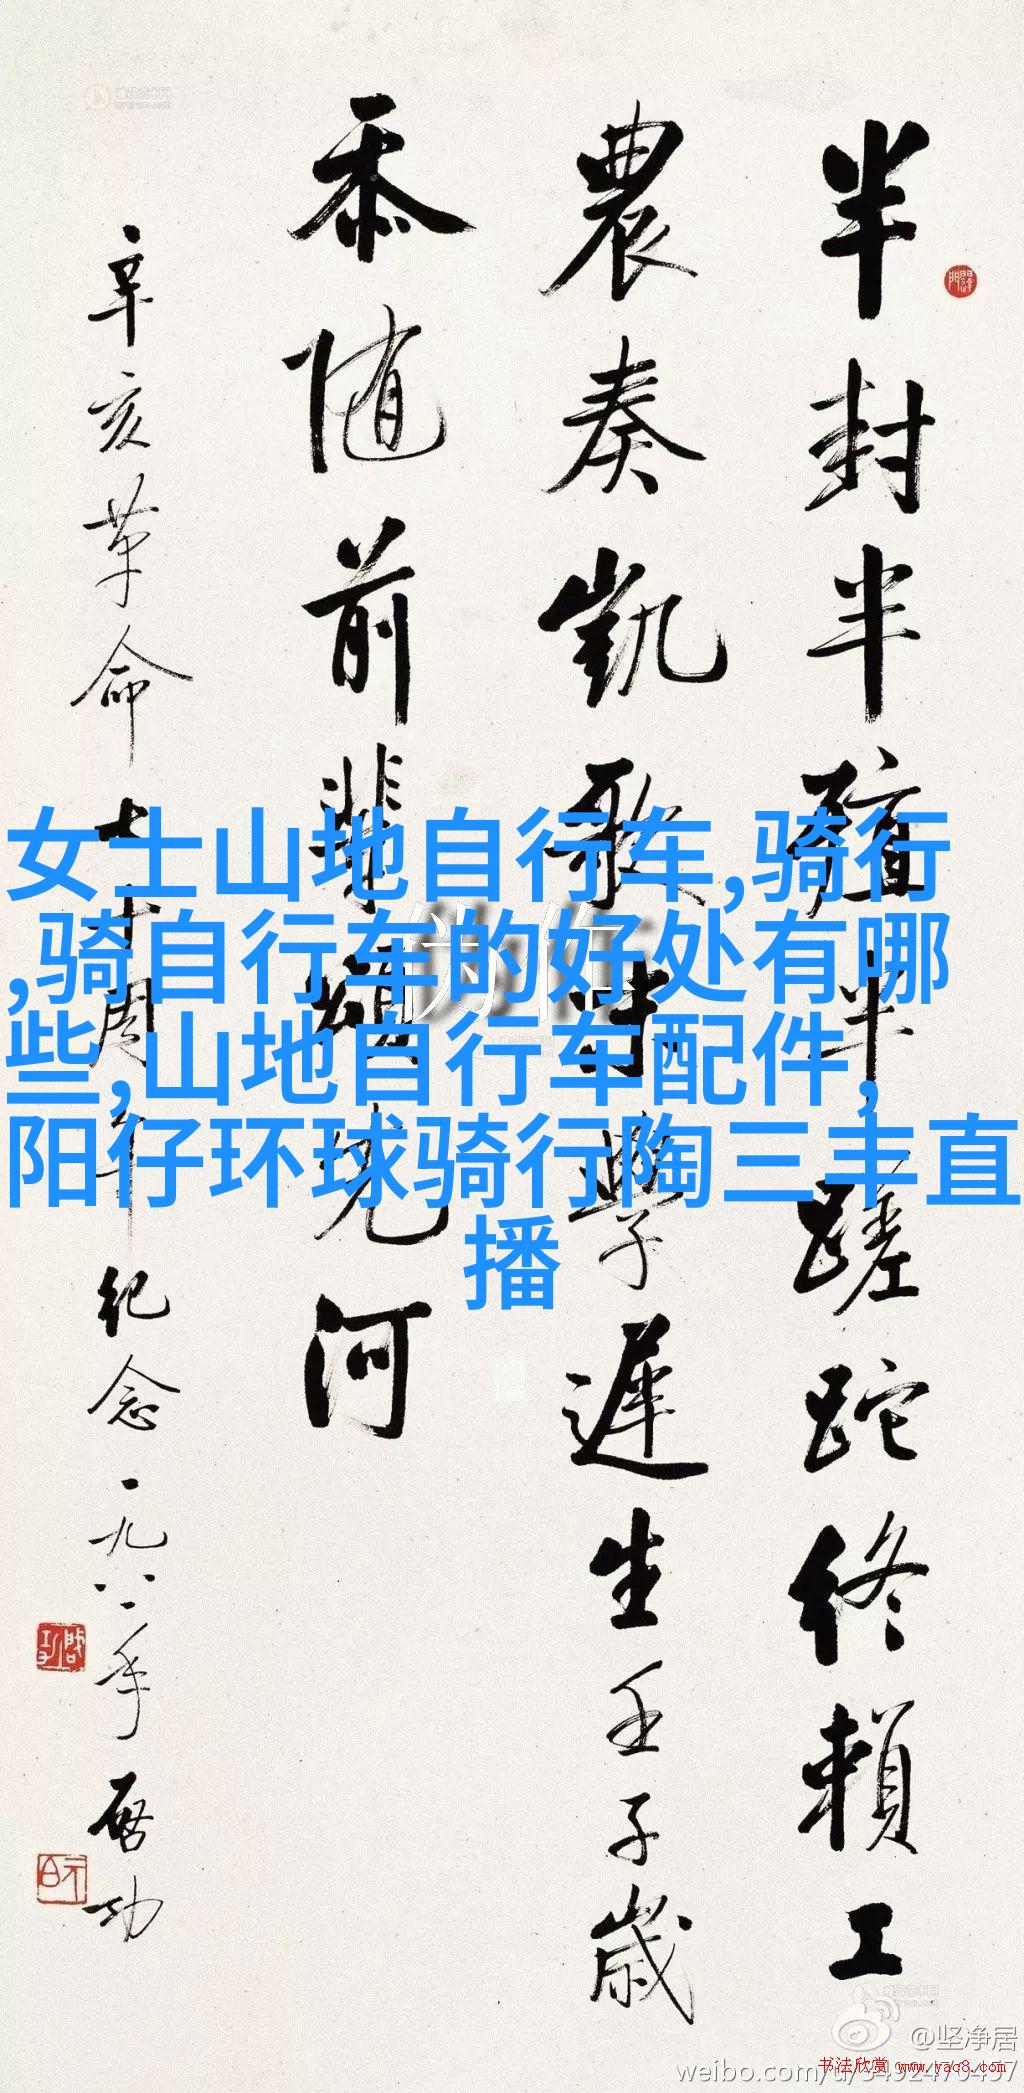 半封半殖半蹉跎終賴工
農奏凱歌學遲生壬子歲
忝随前輩頌先河
辛亥革命七十周年纪念一九八一年 启功
女士山地自行车,骑行
,骑自行车的好处有哪
些,山地自行车配件,
阳仔环球骑行陶三丰直
播
@坚净居
书法欣赏 www.yac8.com